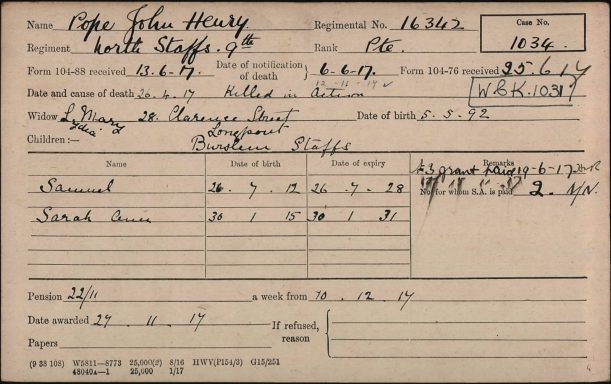 Name Pope John Henry Regimental No. 16342 Case No.
Regiment North Staffs. 9th Rank Pte. 1034.
Form 104-88 received 13.6.17. Date of notification of death 6-6-17. Form 104-76 received 25.6.17
12-11-17
Date and cause of death 26.4.17 Killed in Action W.E.K. 1031
Widow L. Mary 28. Clarence Street Date of birth 5.5.92
Lydia Longport
Children :— Burslem Staffs
Name Date of birth Date of expiry Remarks
£3 grant paid 19-6-17
Samuel 26 . 7 . 12 26 . 7 . 28 No. for whom S.A. is paid 2.
Sarah Ann 30 1 15 30 1 31
Pension 22/11 a week from 10 . 12 . 17
Date awarded 27 . 11 . 17 If refused, reason
Papers
(9 38 108) W5811—8773 25,000(2) 8/16 HWV(P154/3) G15/251
48040A—1 25,000 1/17